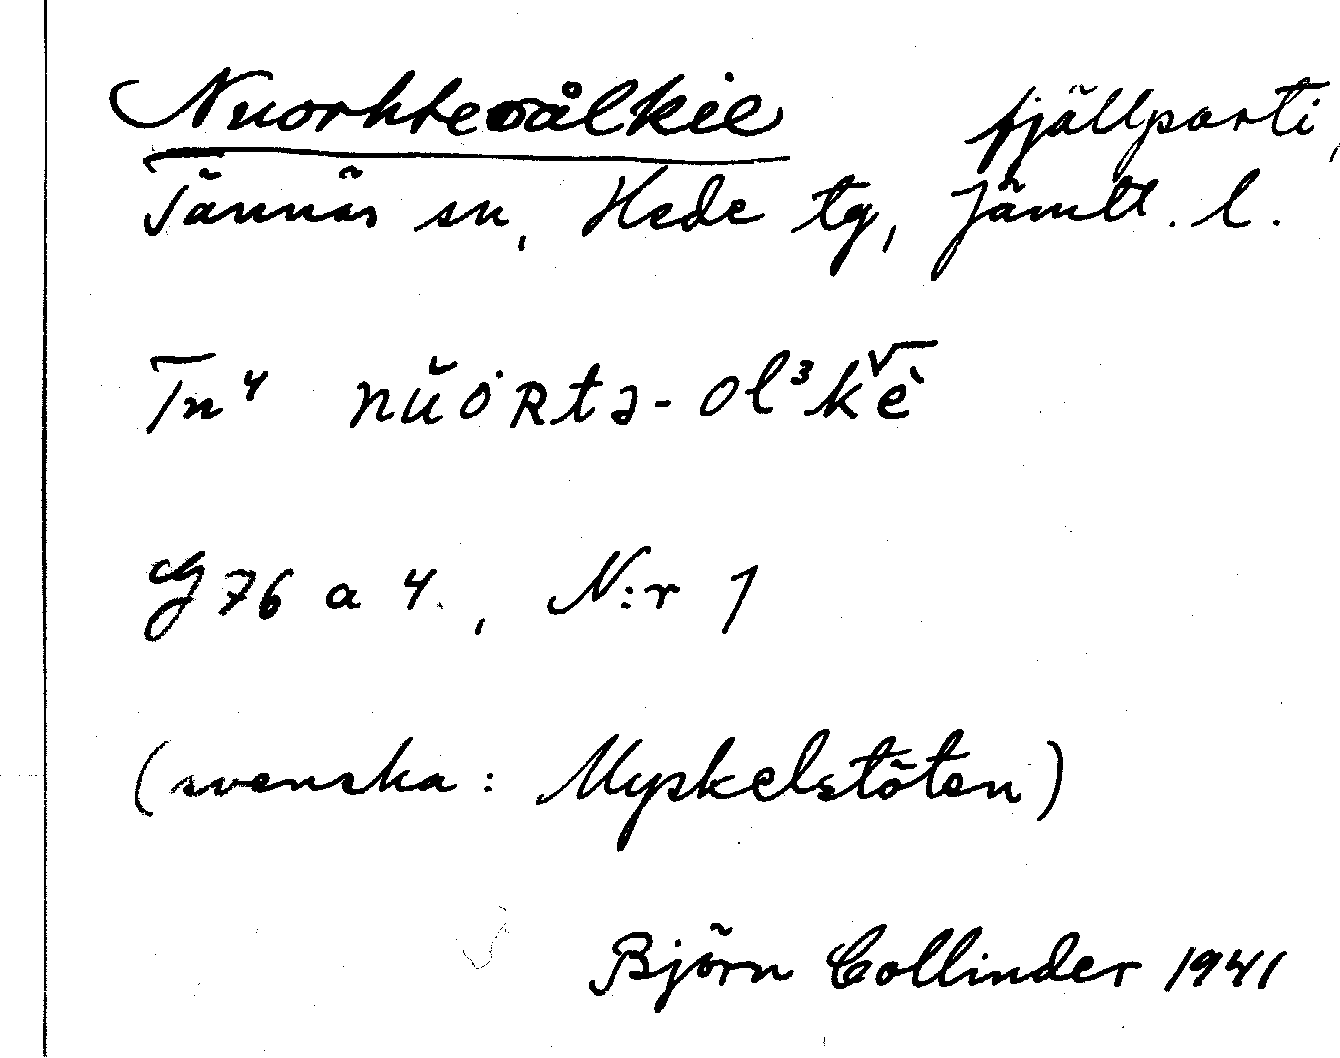 Nuorhteoålkie fjällparti,
Tännäs sn, Hede tg, Jämtl. l.
Tn⁴ nŭȯRtə-ol³k√è
G 76 a 4., N:r 1
(svenska: Myskelstöten)
Björn Collinder 1941